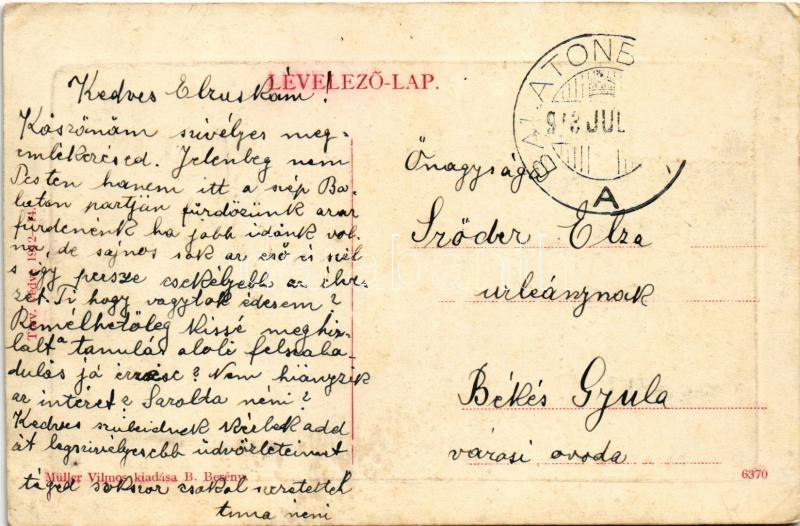 LEVELEZŐ-LAP.
Kedves Elzuskám!
Köszönöm szivélyes meg-
emlékezésed. Jelenleg nem
Pesten hanem itt a szép Ba-
laton partján fürdözünk azaz
fürdenénk ha jobb idönk vol-
na, de sajnos sok az eső és szél
s igy persze csekélyebb az élve-
zet. Ti hogy vagytok édesem?
Remélhetőleg kissé meghiz-
lalt a tanulás alóli felszaba-
dulás jó érzése? Nem hiányzik
az intézet? Sarolta néni?
Kedves szüleidnek kérlek add
át legszivélyesebb üdvözleteimet
téged sokszor csókol szeretettel
néni
BALATONB
913 JUL
A
Őnagysága
Sződer Elza
urleánynak
Békés Gyula
városi ovoda
Müller Vilmos kiadása B. Berény.
6370